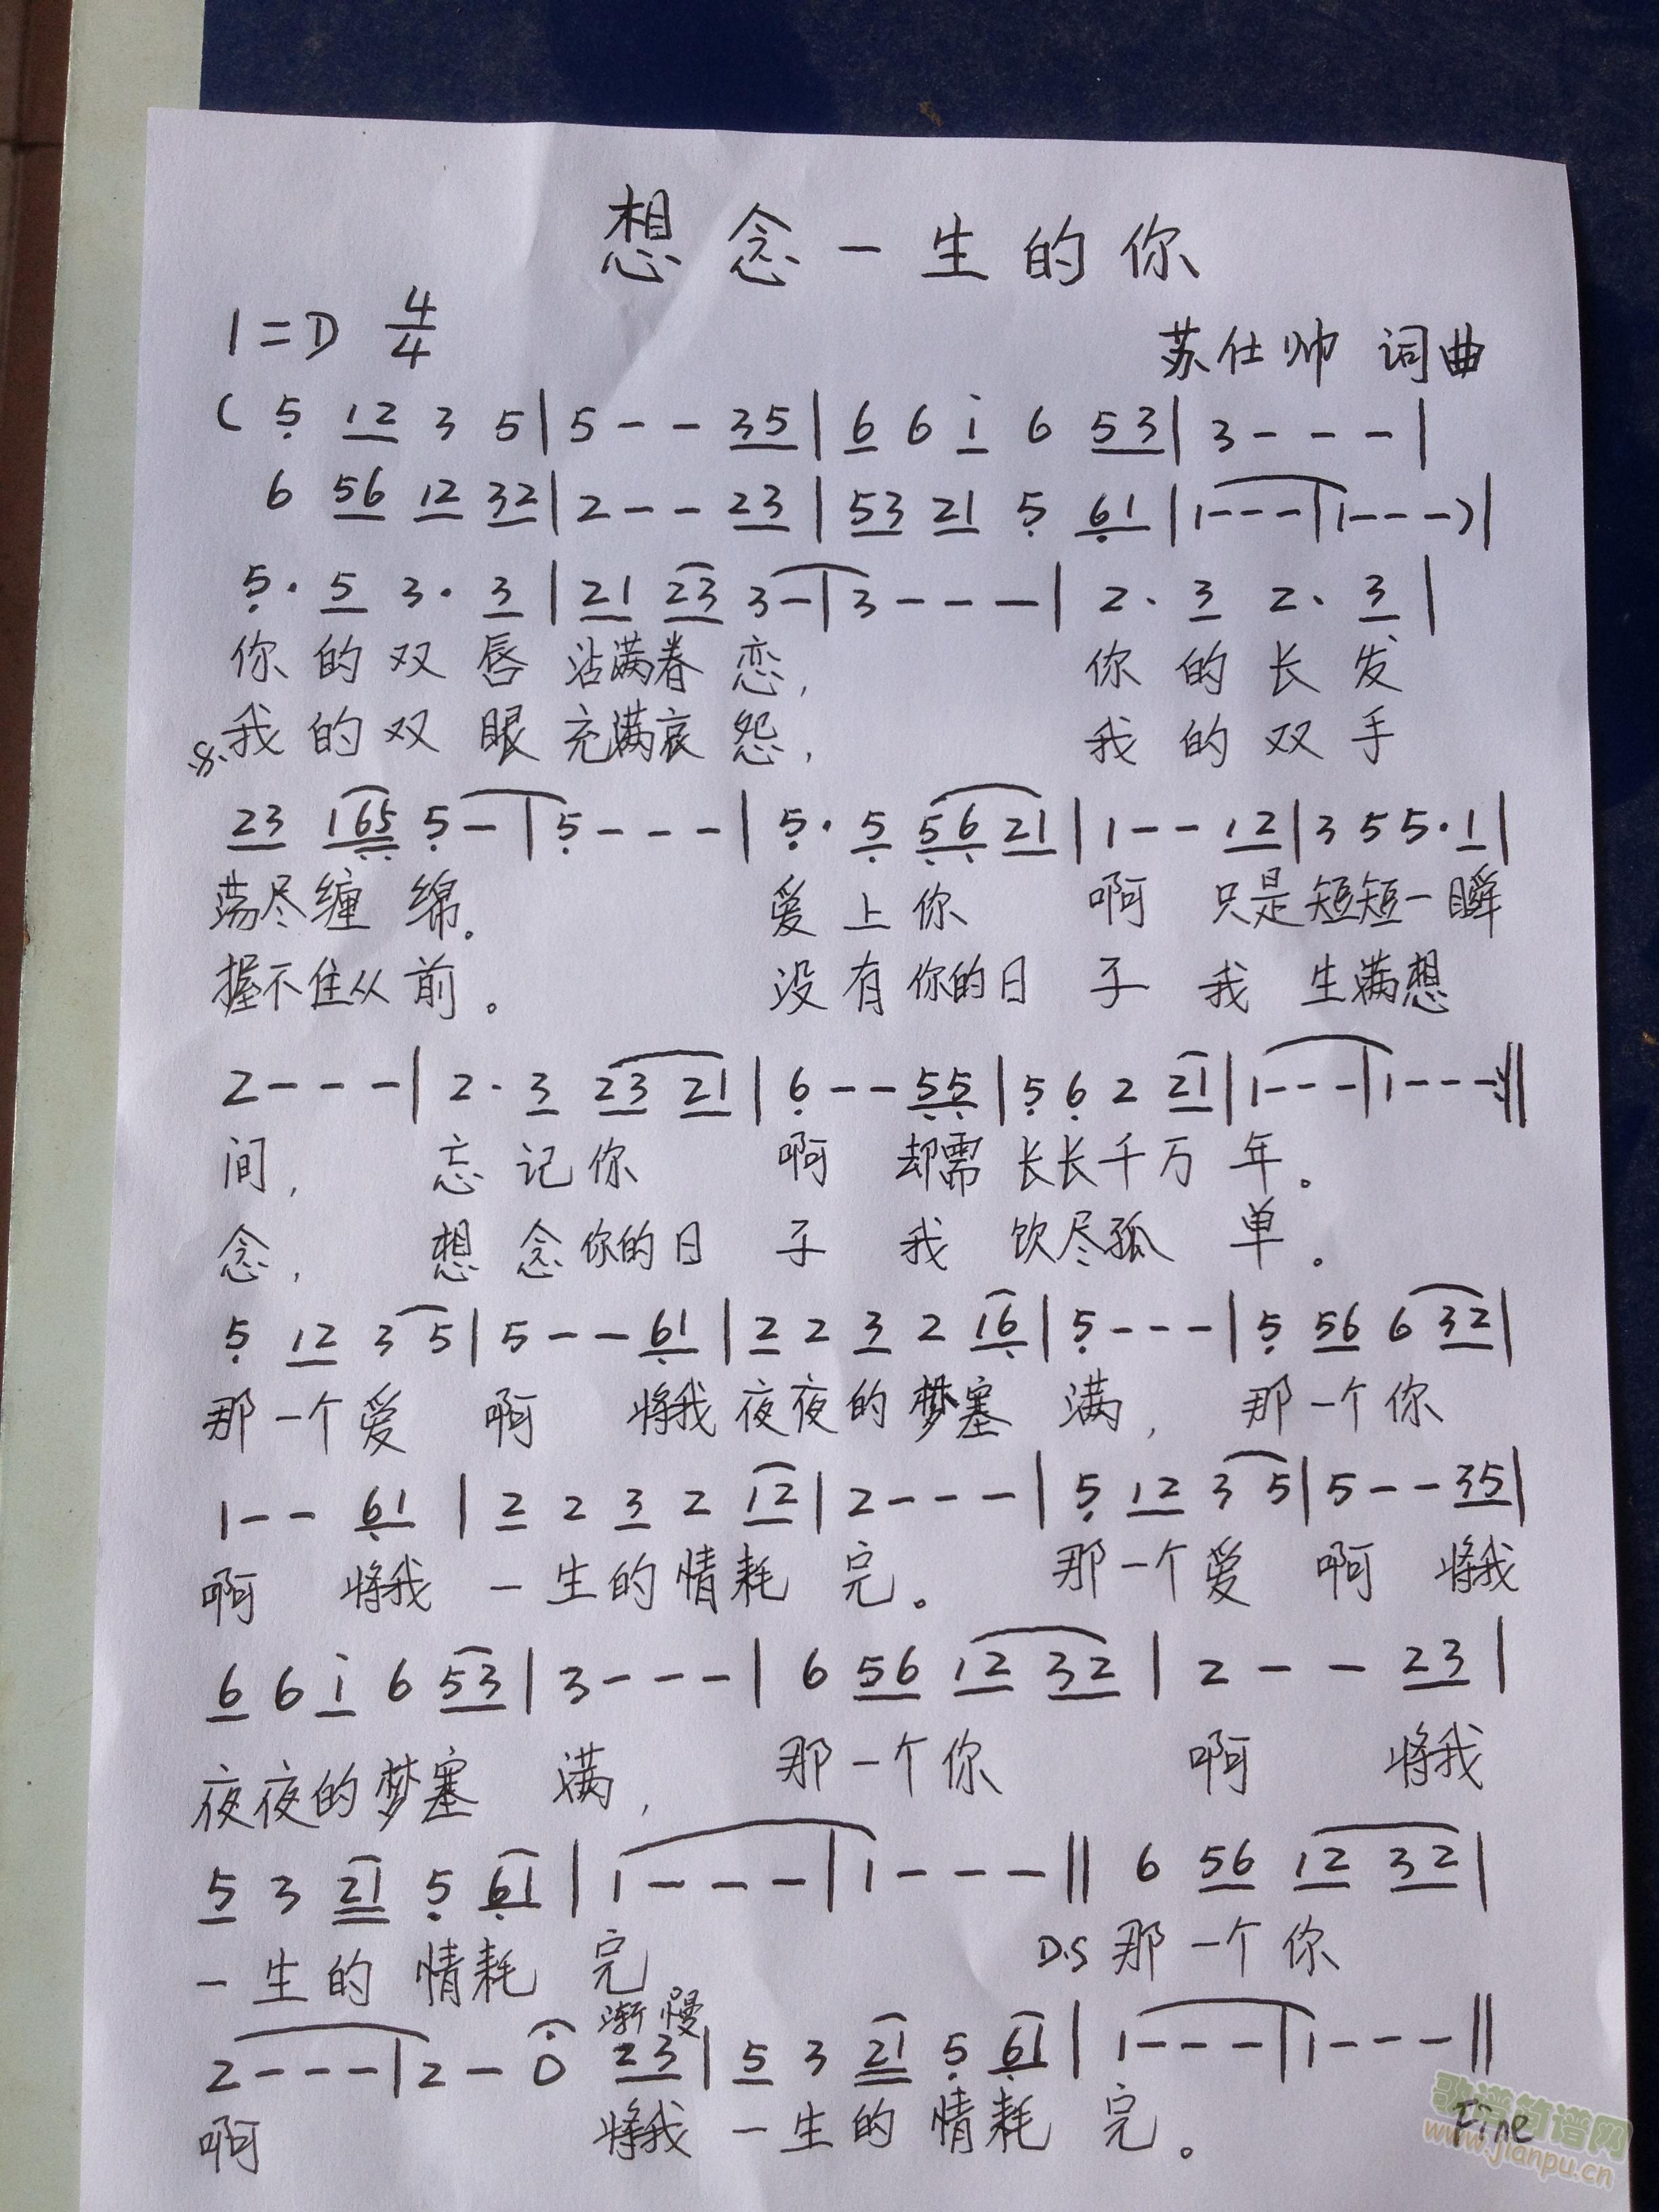 想念一生的你
1=D 4/4
苏仕帅 词曲
( 5 12 3 5 | 5 - - 35 | 6 6 i 6 53 | 3 - - - |
6 56 12 32 | 2 - - 23 | 53 21 5 61 | 1 - - - | 1 - - - ) |
5· 5 3· 3 | 21 23 3 - | 3 - - - | 2· 3 2· 3 |
你的双唇沾满眷恋, 你的长发
我的双眼充满哀怨, 我的双手
23 165 5 - | 5 - - - | 5· 5 56 21 | 1 - - 12 | 3 5 5· 1 |
荡尽缠绵。 爱上你 啊 只是短短一瞬
握不住从前。 没有你的日子 我 生满想
2 - - - | 2· 3 23 21 | 6 - - 55 | 5 6 2 21 | 1 - - - | 1 - - - :||
间, 忘记你 啊 却需长长千万年。
念, 想念你的日子 我 饮尽孤单。
5 12 3 5 | 5 - - 61 | 2 2 3 2 16 | 5 - - - | 5 56 6 32 |
那一个爱 啊 将我夜夜的梦塞满, 那一个你
1 - - 61 | 2 2 3 2 12 | 2 - - - | 5 12 3 5 | 5 - - 35 |
啊 将我一生的情耗完。 那一个爱 啊 将我
6 6 i 6 53 | 3 - - - | 6 56 12 32 | 2 - - 23 |
夜夜的梦塞满, 那一个你 啊 将我
5 3 21 5 61 | 1 - - - | 1 - - - || 6 56 12 32 |
一生的情耗完 D.S 那一个你
渐慢
2 - - - | 2 - 0 23 | 5 3 21 5 61 | 1 - - - | 1 - - - ||
啊 将我一生的情耗完。
Fine
歌谱简谱网
www.jianpu.cn